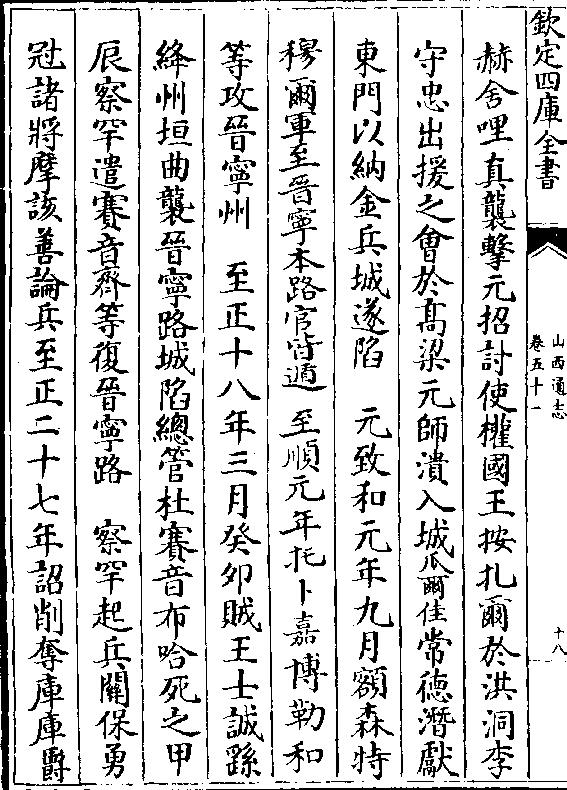 欽定四庫全書
山西通志
卷五十一
十八
赫舍哩真襲擊元招討使權國王按扎爾於洪洞李
守忠出援之會於髙梁元師潰入城瓜爾佳常德潛獻
東門以納金兵城遂陷　元致和元年九月額森特
穆爾軍至晉寧本路官皆遁　至順元年托卜嘉博勒和
等攻晉寧州　至正十八年三月癸卯賊王士誠繇
絳州垣曲襲晉寧路城陷總管杜賽音布哈死之甲
辰察罕遣賽音齊等復晉寧路　察罕起兵關保勇
冠諸將摩該善論兵至正二十七年詔削奪庫庫爵